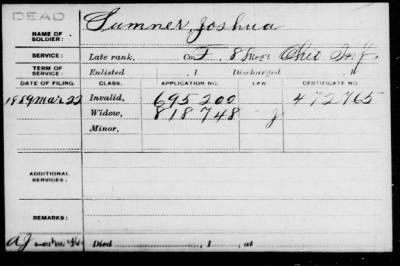 DEAD
NAME OF SOLDIER: Sumner, Joshua
SERVICE: Late rank, Co. F, 8 Reg't Ohio Inf.
TERM OF SERVICE: Enlisted , 1 Discharged , 1
DATE OF FILING. CLASS. APPLICATION NO. LAW. CERTIFICATE NO.
1889 Mar 22 Invalid, 695200 472765
Widow, 818748
Minor,
ADDITIONAL SERVICES:
REMARKS:
Died , 1 , at